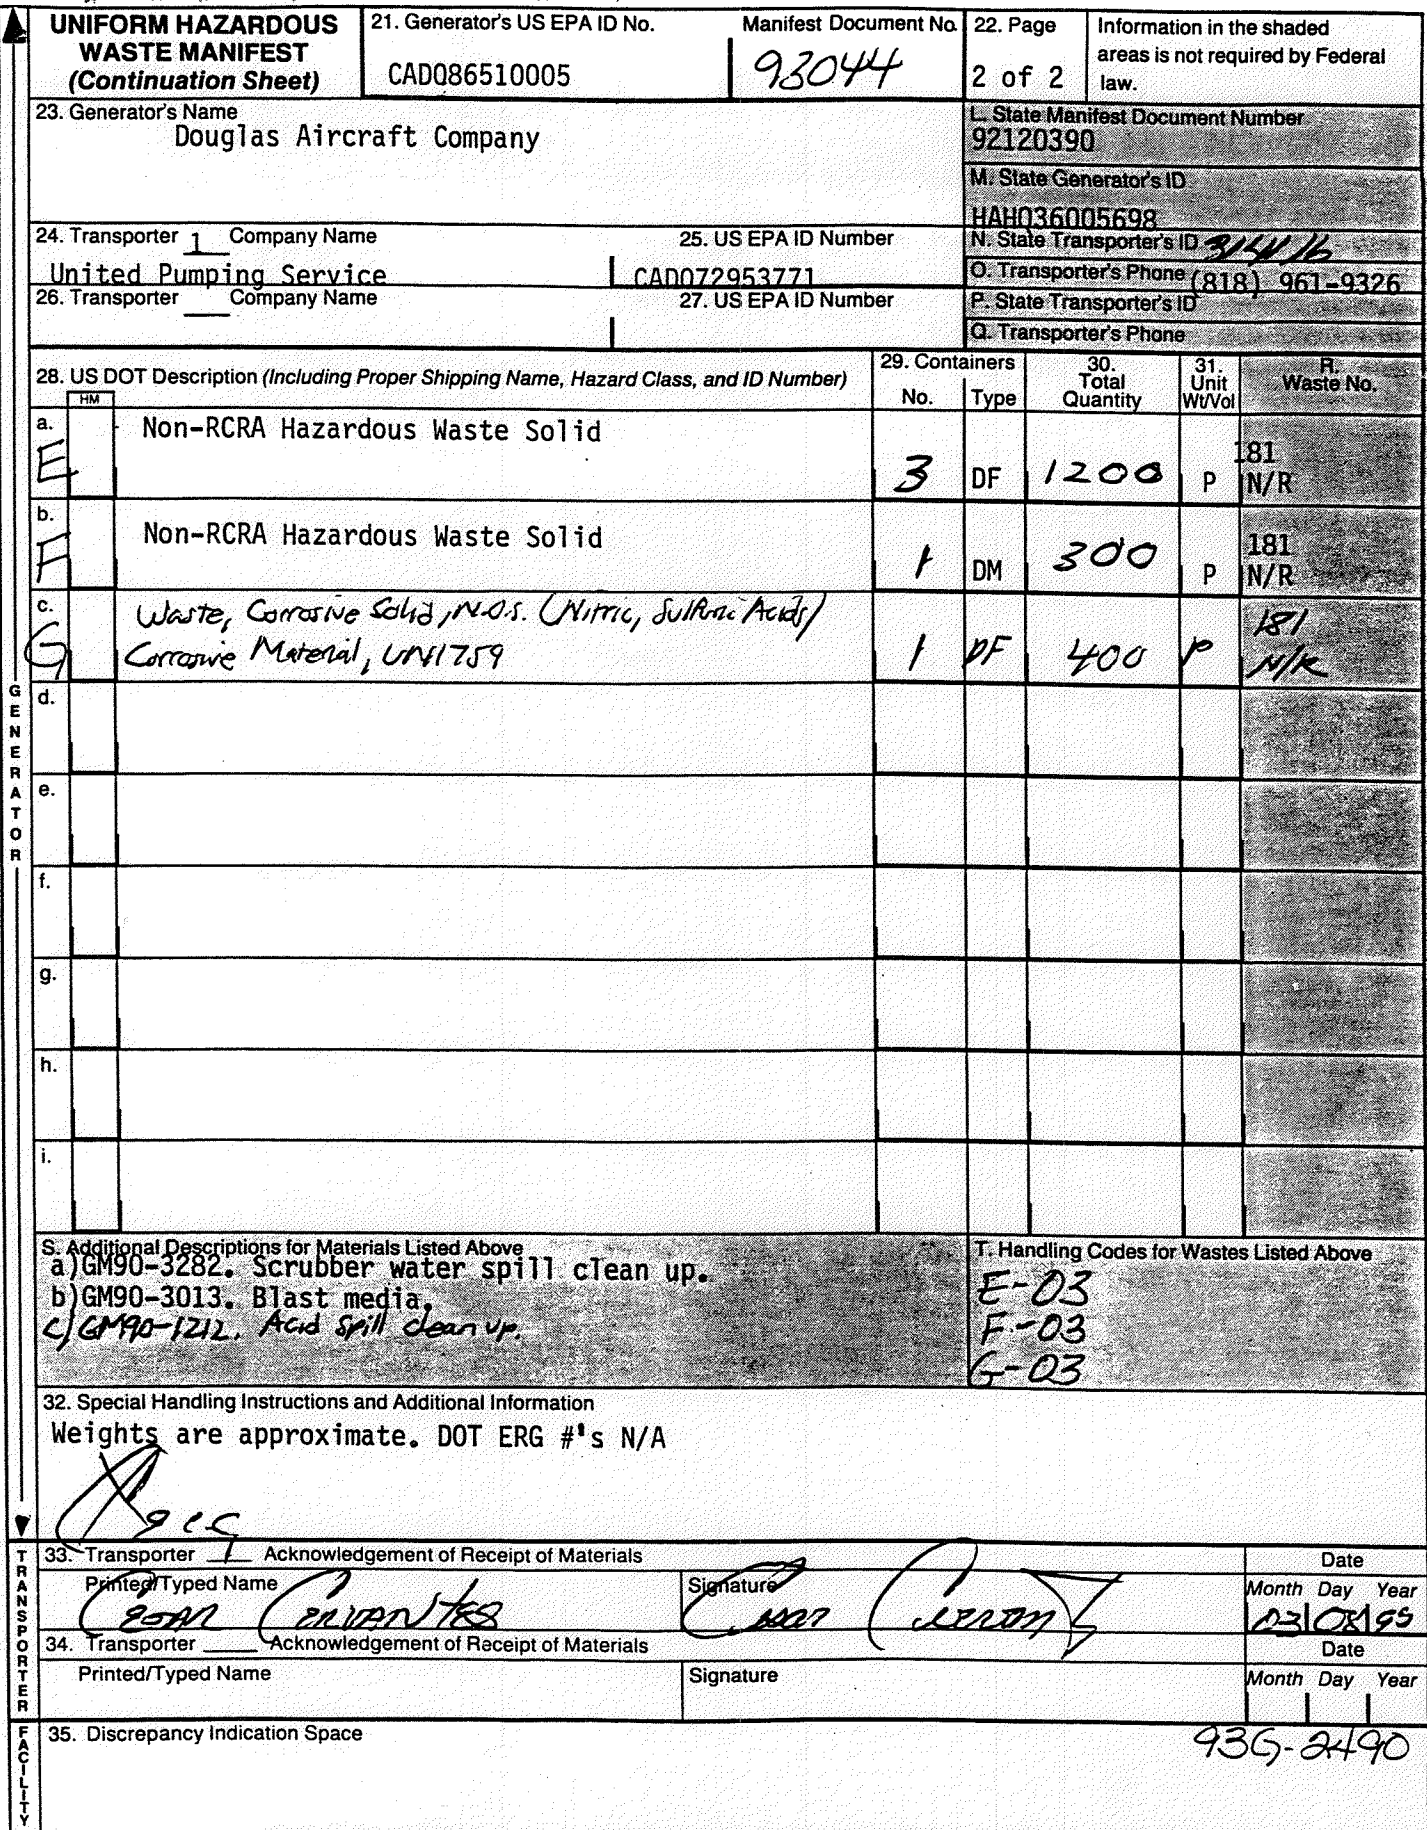 UNIFORM HAZARDOUS WASTE MANIFEST (Continuation Sheet)
21. Generator's US EPA ID No.
CAD086510005
Manifest Document No.
93044
22. Page
2 of 2
Information in the shaded areas is not required by Federal law.
23. Generator's Name
Douglas Aircraft Company
L. State Manifest Document Number
92120390
M. State Generator's ID
HAHQ36005698
24. Transporter 1 Company Name
United Pumping Service
25. US EPA ID Number
CAD072953771
N. State Transporter's ID
O. Transporter's Phone (818) 961-9326
26. Transporter Company Name
27. US EPA ID Number
P. State Transporter's ID
Q. Transporter's Phone
28. US DOT Description (Including Proper Shipping Name, Hazard Class, and ID Number)
HM
29. Containers
No. Type
30. Total Quantity
31. Unit Wt/Vol
R. Waste No.
a. E Non-RCRA Hazardous Waste Solid
3 DF 1200 P 181 N/R
b. F Non-RCRA Hazardous Waste Solid
1 DM 300 P 181 N/R
c. G Waste, Corrosive Solid, N.O.S. (Nitric, Sulfuric Acids)
Corrosive Material, UN1759
1 DF 400 P 181 N/R
d.
e.
f.
g.
h.
i.
GENERATOR
S. Additional Descriptions for Materials Listed Above
a)GM90-3282. Scrubber water spill clean up.
b)GM90-3013. Blast media.
c) GM90-1212. Acid spill clean up.
T. Handling Codes for Wastes Listed Above
E-03
F-03
G-03
32. Special Handling Instructions and Additional Information
Weights are approximate. DOT ERG #'s N/A
TRANSPORTER
33. Transporter 1 Acknowledgement of Receipt of Materials
Printed/Typed Name
Cesar Cervantes
Signature
Date
Month Day Year
03 08
34. Transporter Acknowledgement of Receipt of Materials
Printed/Typed Name
Signature
Date
Month Day Year
FACILITY
35. Discrepancy Indication Space
93G-2490